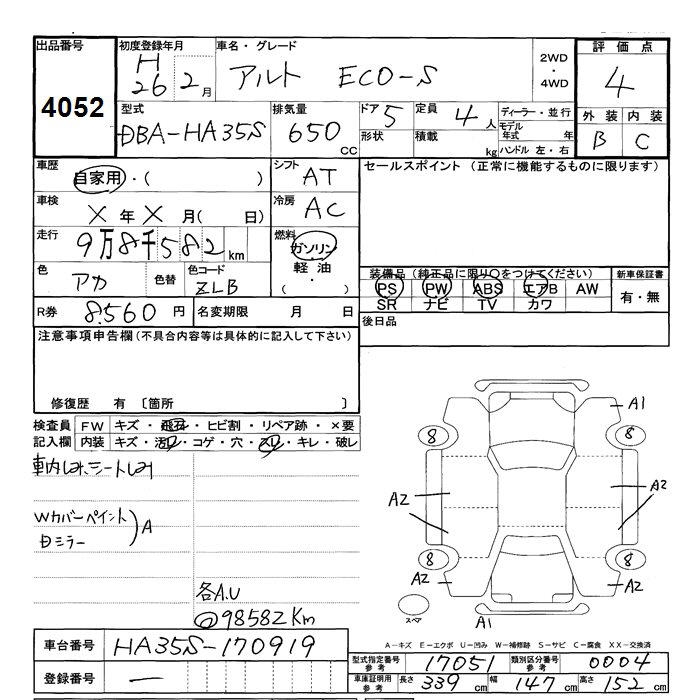 出品番号 4052
初度登録年月 H 26 2月
車名・グレード アルト ECO-S
2WD・4WD
評価点 4
外装 B 内装 C
型式 DBA-HA35S
排気量 650 CC
ドア 5 形状
定員 4人 積載 kg
ディーラー・並行
モデル年式 年
ハンドル 左・右
車歴 自家用・( )
シフト AT
セールスポイント (正常に機能するものに限ります)
車検 X年X月( 日)
冷房 AC
走行 9万8千582km
燃料 ガソリン 軽油 ( ・ )
色 アカ 色替 色コード ZLB
装備品 (純正品に限り○をつけてください)
新車保証書 有・無
PS PW ABS エアB AW
SR ナビ TV カワ
R券 8,560円 名変期限 月 日
後日品
注意事項申告欄(不具合内容等は具体的に記入して下さい)
修復歴 有 〔箇所 〕
検査員記入欄
FW キズ・飛石・ヒビ割・リペア跡・×要
内装 キズ・汚レ・コゲ・穴・スレ・キレ・破レ
車内しみ、シートしみ
Wカバーペイント
日ミラー
A
各A.U
@98582Km
A1
8 8
A2 A2
8 8
A2 A2
スペア A1
A-キズ E-エクボ U-凹み W-補修跡 S-サビ C-腐食 XX-交換済
車台番号 HA35S-170919
登録番号 ー
型式指定番号 参考 17051 類別区分番号 参考 0004
車庫証明用 参考 長さ 339cm 幅 147cm 高さ 152cm